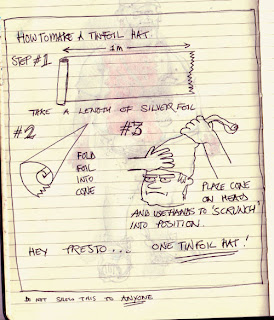 HOW TO MAKE A TINFOIL HAT
STEP #1
1m
TAKE A LENGTH OF SILVER FOIL
#2
#3
FOLD
FOIL
INTO
CONE
PLACE CONE
ON HEAD
AND USE HANDS TO 'SCRUNCH'
INTO POSITION.
HEY PRESTO.... ONE TINFOIL HAT!
DO NOT SHOW THIS TO ANYONE